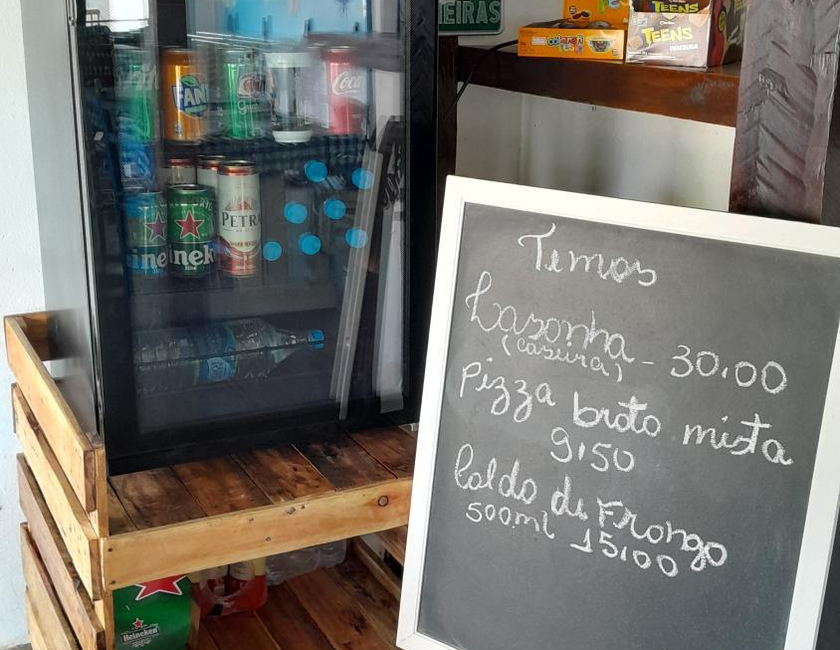 EIRAS
TEENS
TEENS
FAN
Coca
Heineken
PETRA
Temos
Lasanha
(caseira) - 30,00
Pizza broto mista
9,50
Caldo de Frango
500ml 15,00
Heineken